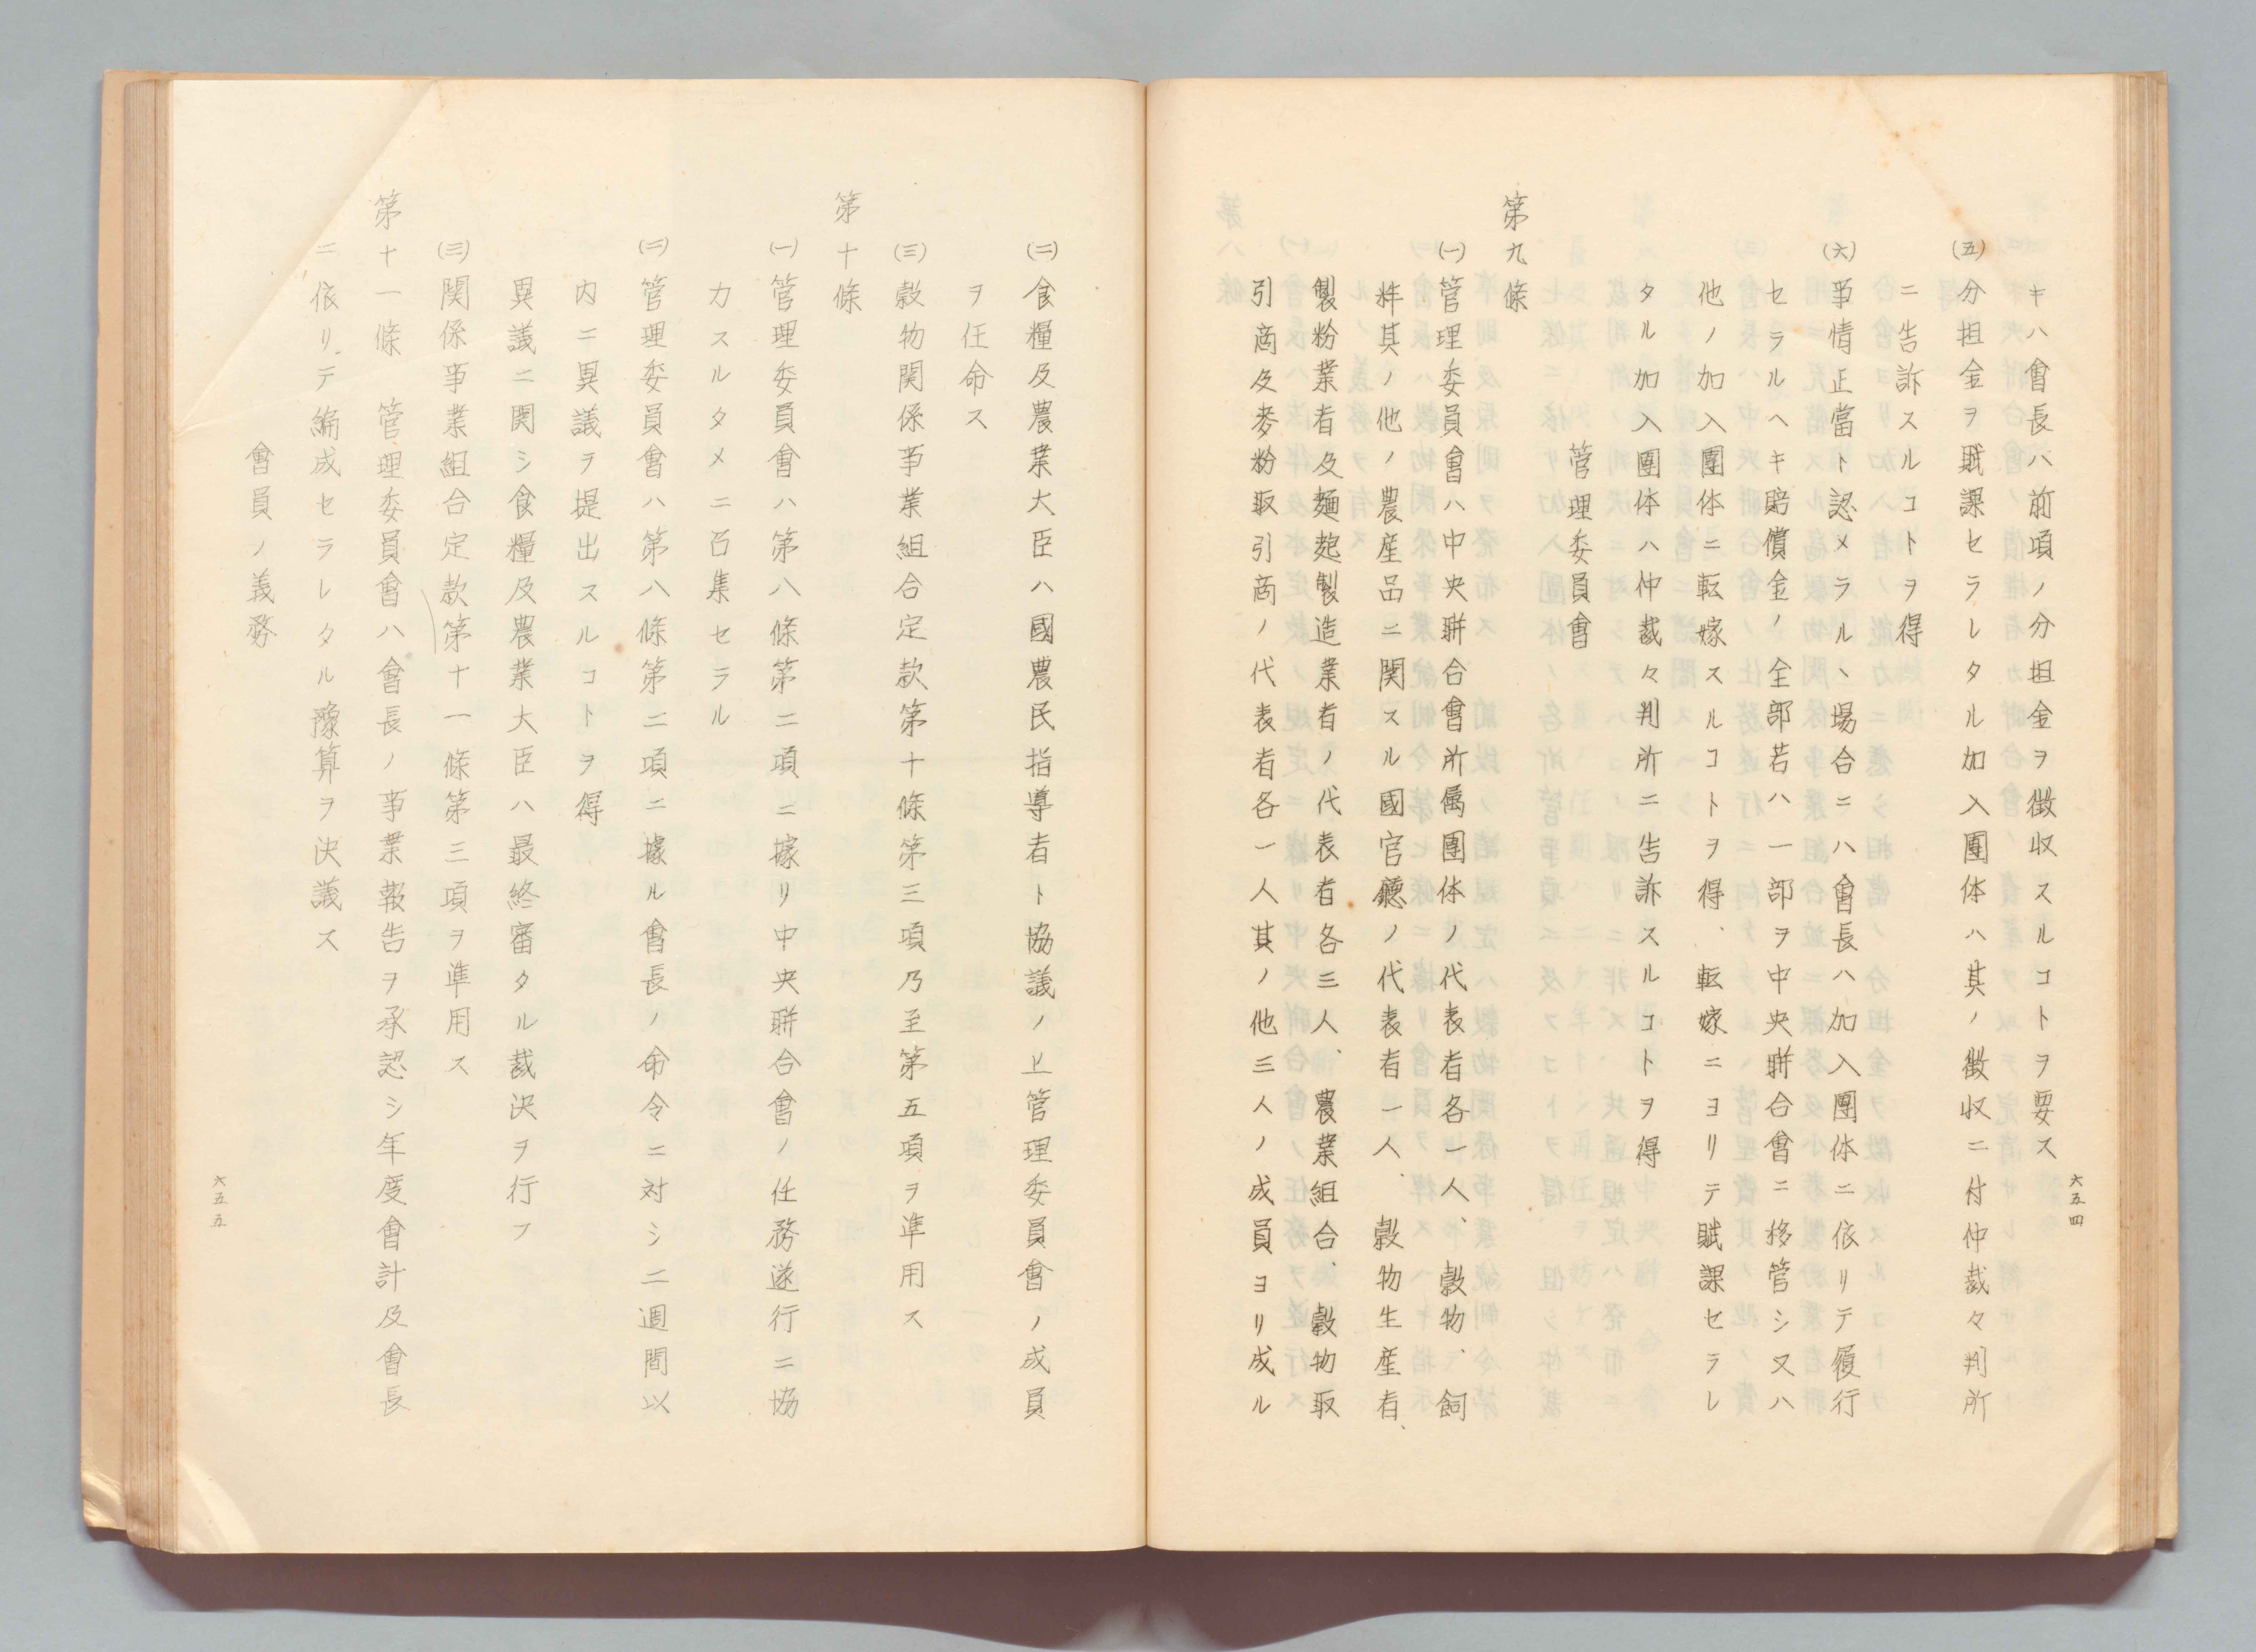 キハ會長ハ前項ノ分担金ヲ徴収スルコトヲ要ス
㈤分担金ヲ賦課セラレタル加入團体ハ其ノ徴収ニ付仲裁々判所
ニ告訴スルコトヲ得
㈥事情正當ト認メラルヽ場合ニハ會長ハ加入團体ニ依リテ履行
セラルヘキ賠償金ノ全部若ハ一部ヲ中央聯合會ニ移管シ又ハ
他ノ加入團体ニ転嫁スルコトヲ得、転嫁ニヨリテ賦課セラレ
タル加入團体ハ仲裁々判所ニ告訴スルコトヲ得
管理委員會
第九條
㈠管理委員會ハ中央聯合會所属團体ノ代表者各一人、穀物、飼
料其ノ他ノ農産品ニ関スル國官廳ノ代表者一人、穀物生産者、
製粉業者及麺麭製造業者ノ代表者各三人、農業組合、穀物取
引商及麥粉取引商ノ代表者各一人其ノ他三人ノ成員ヨリ成ル
六五四
㈡食糧及農業大臣ハ國農民指導者ト協議ノ上管理委員會ノ成員
ヲ任命ス
㈢穀物関係事業組合定款第十條第三項乃至第五項ヲ準用ス
第十條
㈠管理委員會ハ第八條第二項ニ據リ中央聯合會ノ任務遂行ニ協
力スルタメニ召集セラル
㈡管理委員會ハ第八條第二項ニ據ル會長ノ命令ニ対シ二週間以
内ニ異議ヲ提出スルコトヲ得
異議ニ関シ食糧及農業大臣ハ最終審タル裁決ヲ行フ
㈢関係事業組合定款第十一條第三項ヲ準用ス
第十一條　管理委員會ハ會長ノ事業報告ヲ承認シ年度會計及會長
ニ依リテ編成セラレタル豫算ヲ決議ス
會員ノ義務
六五五